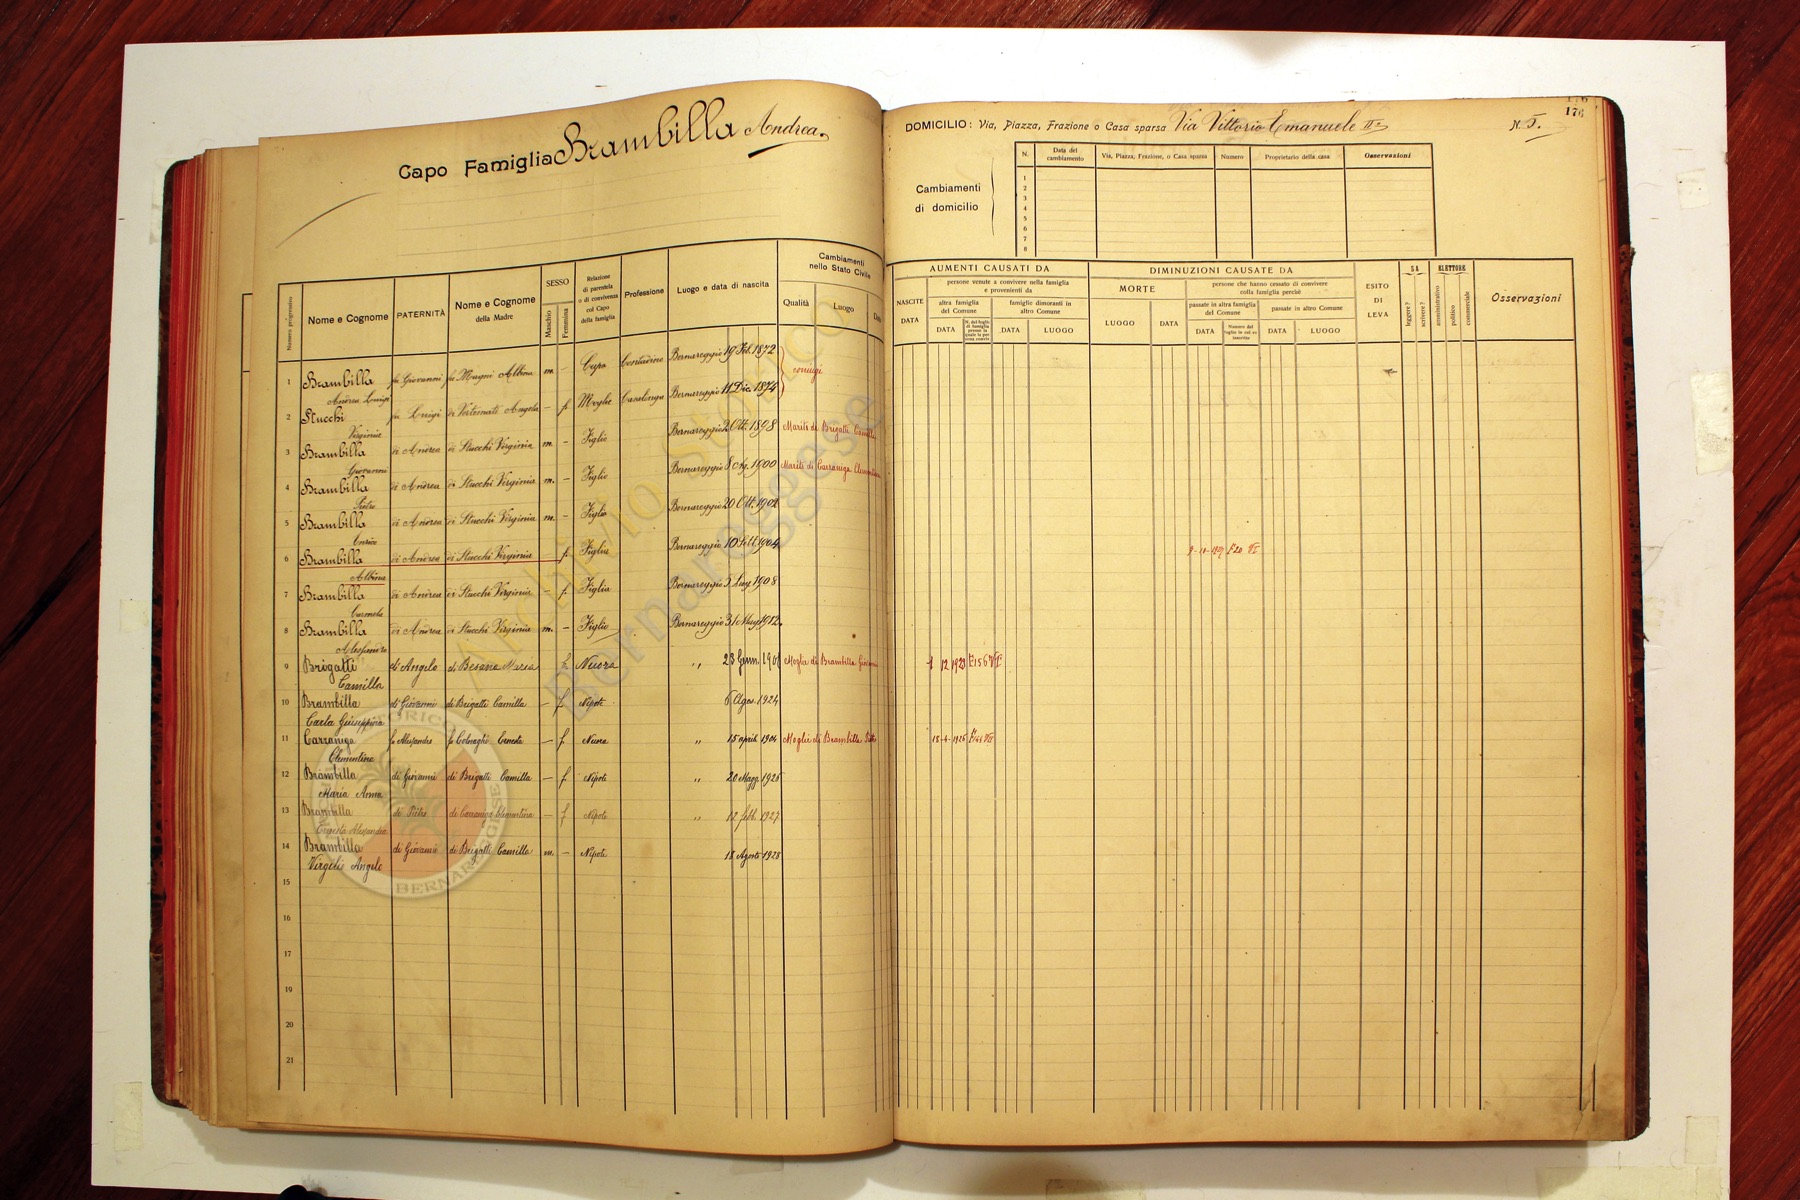 Capo Famiglia Brambilla Andrea
Numero progressivo
Nome e Cognome
PATERNITÀ
Nome e Cognome
della Madre
SESSO
Maschio
Femmina
Relazione
di parentela
o di convivenza
col Capo
della famiglia
Professione
Luogo e data di nascita
Cambiamenti
nello Stato Civile
Qualità
Luogo
Data
1 Brambilla fu Giovanni fu Magni Albina m. - Capo Contadino Bernareggio 19 Feb. 1872 coniugi
Andrea Luigi
2 Stucchi fu Luigi di Vertemati Angela - f. Moglie Casalinga Bernareggio 11 Dic. 1874
Virginia
3 Brambilla di Andrea di Stucchi Virginia m. - Figlio Bernareggio 2 Ott. 1898 Marito di Brigatti Camilla
Giovanni
4 Brambilla di Andrea di Stucchi Virginia m. - Figlio Bernareggio 1900 Marito di Carzaniga Clementina
Pietro
5 Brambilla di Andrea di Stucchi Virginia m. - Figlio Bernareggio 20 Ott. 1902
Enrico
6 Brambilla di Andrea di Stucchi Virginia f. Figlia Bernareggio 10 Sett. 1904
Albina
7 Brambilla di Andrea di Stucchi Virginia - f. Figlia Bernareggio 1908
Carmela
8 Brambilla di Andrea di Stucchi Virginia m. - Figlio Bernareggio 31 Mag. 1912
Alessandro
9 Brigatti di Angelo di Besana Maria f. Nuora " 23 Genn. Moglie di Brambilla Giovanni
Camilla
10 Brambilla di Giovanni di Brigatti Camilla - f. Nipote 6 Agos. 1924
Carla Giuseppina
11 Carzaniga fu Alessandro fu Colnaghi Ernesta - f. Nuora " 15 april 1904 Moglie di Brambilla Pietro
Clementina
12 Brambilla di Giovanni di Brigatti Camilla - f. Nipote " 20 Magg. 1926
Maria Anna
13 Brambilla di Pietro di Carzaniga Clementina - f. Nipote " 12 febb. 1927
Ernesta Alessandra
14 Brambilla di Giovanni di Brigatti Camilla m. - Nipote 18 Agosto 1928
Virgilio Angelo
15
16
17
18
19
20
21
Archivio storico
Bernareggese
176
176
DOMICILIO: Via, Piazza, Frazione o Casa sparsa Via Vittorio Emanuele II° N. 5.
Cambiamenti
di domicilio
N.
Data del
cambiamento
Via, Piazza, Frazione, o Casa sparsa
Numero
Proprietario della casa
Osservazioni
1
2
3
4
5
6
7
8
AUMENTI CAUSATI DA
NASCITE
DATA
persone venute a convivere nella famiglia
e provenienti da
altra famiglia
del Comune
DATA
N. del foglio
di famiglia
presso la
quale la per
sona convive
famiglie dimoranti in
altro Comune
DATA
LUOGO
DIMINUZIONI CAUSATE DA
MORTE
LUOGO
DATA
persone che hanno cessato di convivere
colla famiglia perchè
passate in altra famiglia
del Comune
DATA
Numero del
foglio in cui es
inscritta
passate in altro Comune
DATA
LUOGO
ESITO
DI
LEVA
SA
leggere?
scrivere?
ELETTORE
amministrativo
politico
commerciale
Osservazioni
9-10-1927 F° 20 VI
1 12 1923 F° 156 VI°
18-4-1926 VI